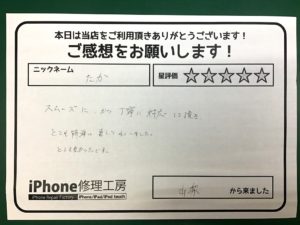 本日は当店をご利用頂きありがとうございます!
ご感想をお願いします!
ニックネーム
たか
星評価 ☆☆☆☆☆
スムーズに、かつ丁寧に対応して頂き
とても
iPhone修理工房
iPhone Repair Factory iPhone/iPad/iPod touch
から来ました